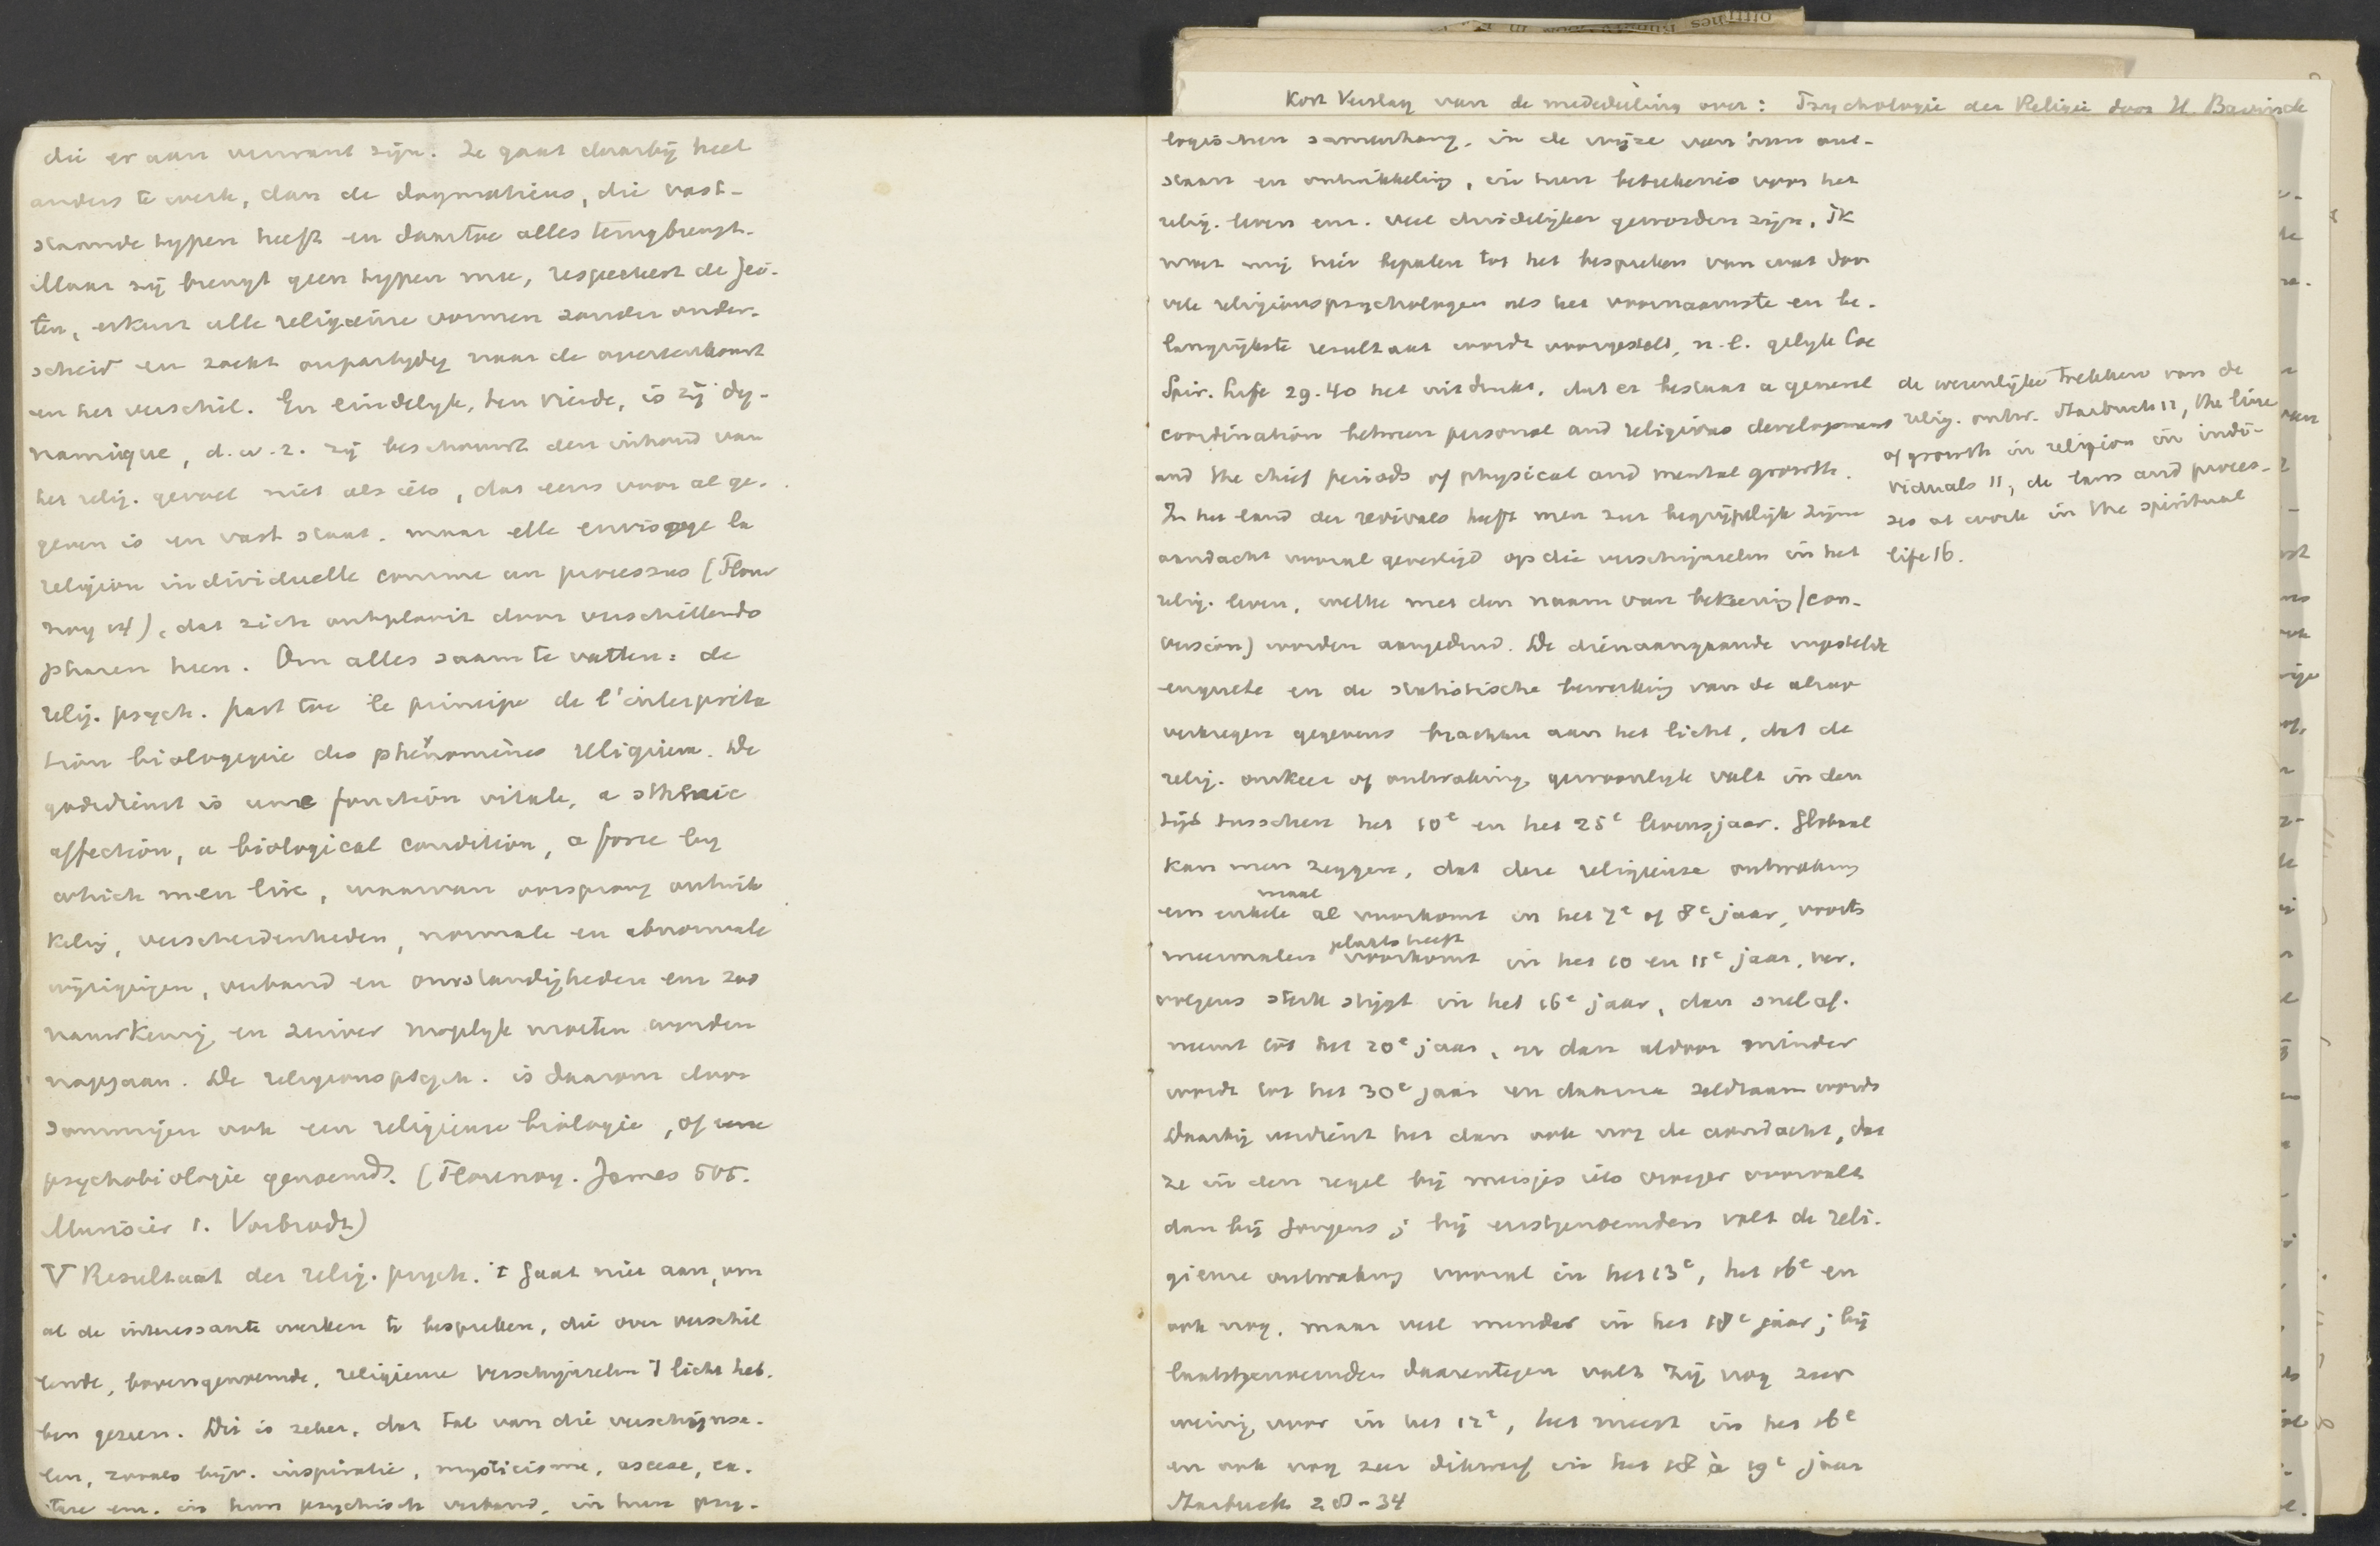 Kort Verslag van de mededeeling over: Psychologie der Religie door H. Bavinck
die er aan verwant zijn. Ze gaat daarbij heel
anders te werk, dan de dogmaticus, die vast-
staande typen heeft en daartoe alles terugbrengt.
Maar zij brengt geen typen mee, respecteert de fei-
ten, erkent alle religieuse vormen zonder onder-
scheid en zoekt onpartijdig naar de overeenkomst
en het verschil. En eindelijk, ten vierde, is zij dy-
namique, d.w.z. zij beschouwt den inhoud van
het relig. gevoel niet als iets, dat eens voor al ge-
geven is en vast staat. maar elle envisage la
religion individuelle comme un processus (Flour
noy 14), dat zich ontplooit door verschillende
phasen heen. Om alles saam te vatten: de
relig. psych. past toe le principe de l'interpréta
tion biologique des phénomènes religieux. De
godsdienst is une fonction vitale, a sthenic
affection, a biological condition, a force by
which men live, waarvan oorsprong ontwik
keling, verscheidenheden, normale en abnormale
wijzigingen, verband en omstandigheden enz zoo
nauwkeurig en zuiver mogelijk moeten worden
nagegaan. De religionspsych. is daarom door
sommigen ook een religieuse biologie, of eene
psychobiologie genoemd. (Flournoy. James 505.
Murisier 1. Vorbrodt)
V Resultaat der relig. psych. 't gaat niet aan, om
al de interessante werken te bespreken, die over verschil
lende, bovengenoemde, religieuse verschijnselen 't licht heb.
ben gezien. Dit is zeker, dat tal van die verschijnse-
len, zooals bijv. inspiratie, mysticisme, ascese, ex.
tase enz. in hun psychisch verband, in hun psy-
logischen samenhang, in de wijze van hun ont-
staan en ontwikkeling, in hun beteekenis voor het
relig. leven enz. veel duidelijker geworden zijn. Ik
moet mij hier bepalen tot het bespreken van wat door
vele religionspsychologen als het voornaamste en be-
langrijkste resultaat wordt voorgesteld, n.l. gelijk Coe
Spir. Life 29.40 het uitdrukt, dat er bestaat a general
coordination between personal and religious development
and the chief periods of physical and mental growth.
In het land der revivals heeft men zeer begrijpelijk zijne
aandacht vooral gevestigd op die verschijnselen in het
relig. leven, welke met den naam van bekeering (con-
version) worden aangeduid. De dienaangaande ingestelde
enquete en de statistische bewerking van de alzoo
verkregen gegevens brachten aan het licht, dat de
relig. omkeer of ontwaking gewoonlijk valt in den
tijd tusschen het 10e en het 25e levensjaar. Globaal
kan men zeggen, dat deze religieuse ontwaking
maal
een enkele al voorkomt in het 7e of 8e jaar, voorts
plaats heeft
meermalen voorkomt in het 10 en 11e jaar, ver.
volgens sterk stijgt in het 16e jaar, dan snel af.
neemt tot het 20e jaar, en dan aldoor minder
wordt tot het 30e jaar en daarna zeldzaam wordt
Daarbij verdient het dan ook nog de aandacht, dat
ze in den regel bij meisjes iets vroeger voorvalt
dan bij jongens; bij eerstgenoemden valt de reli-
gieuse ontwaking vooral in het 13e, het 16e en
ook nog, maar veel minder in het 18e jaar; bij
laatstgenoemden daarentegen valt zij nog zeer
weinig voor in het 12e, het meest in het 16e
en ook nog zeer dikwerf in het 18 à 19e jaar
Starbuck 28-34
de wezenlijke trekken van de
relig. ontw. Starbuck 11, the line
of growth in religion in indi-
viduals 11, de laws and proces-
ses at work in the spiritual
life 16.